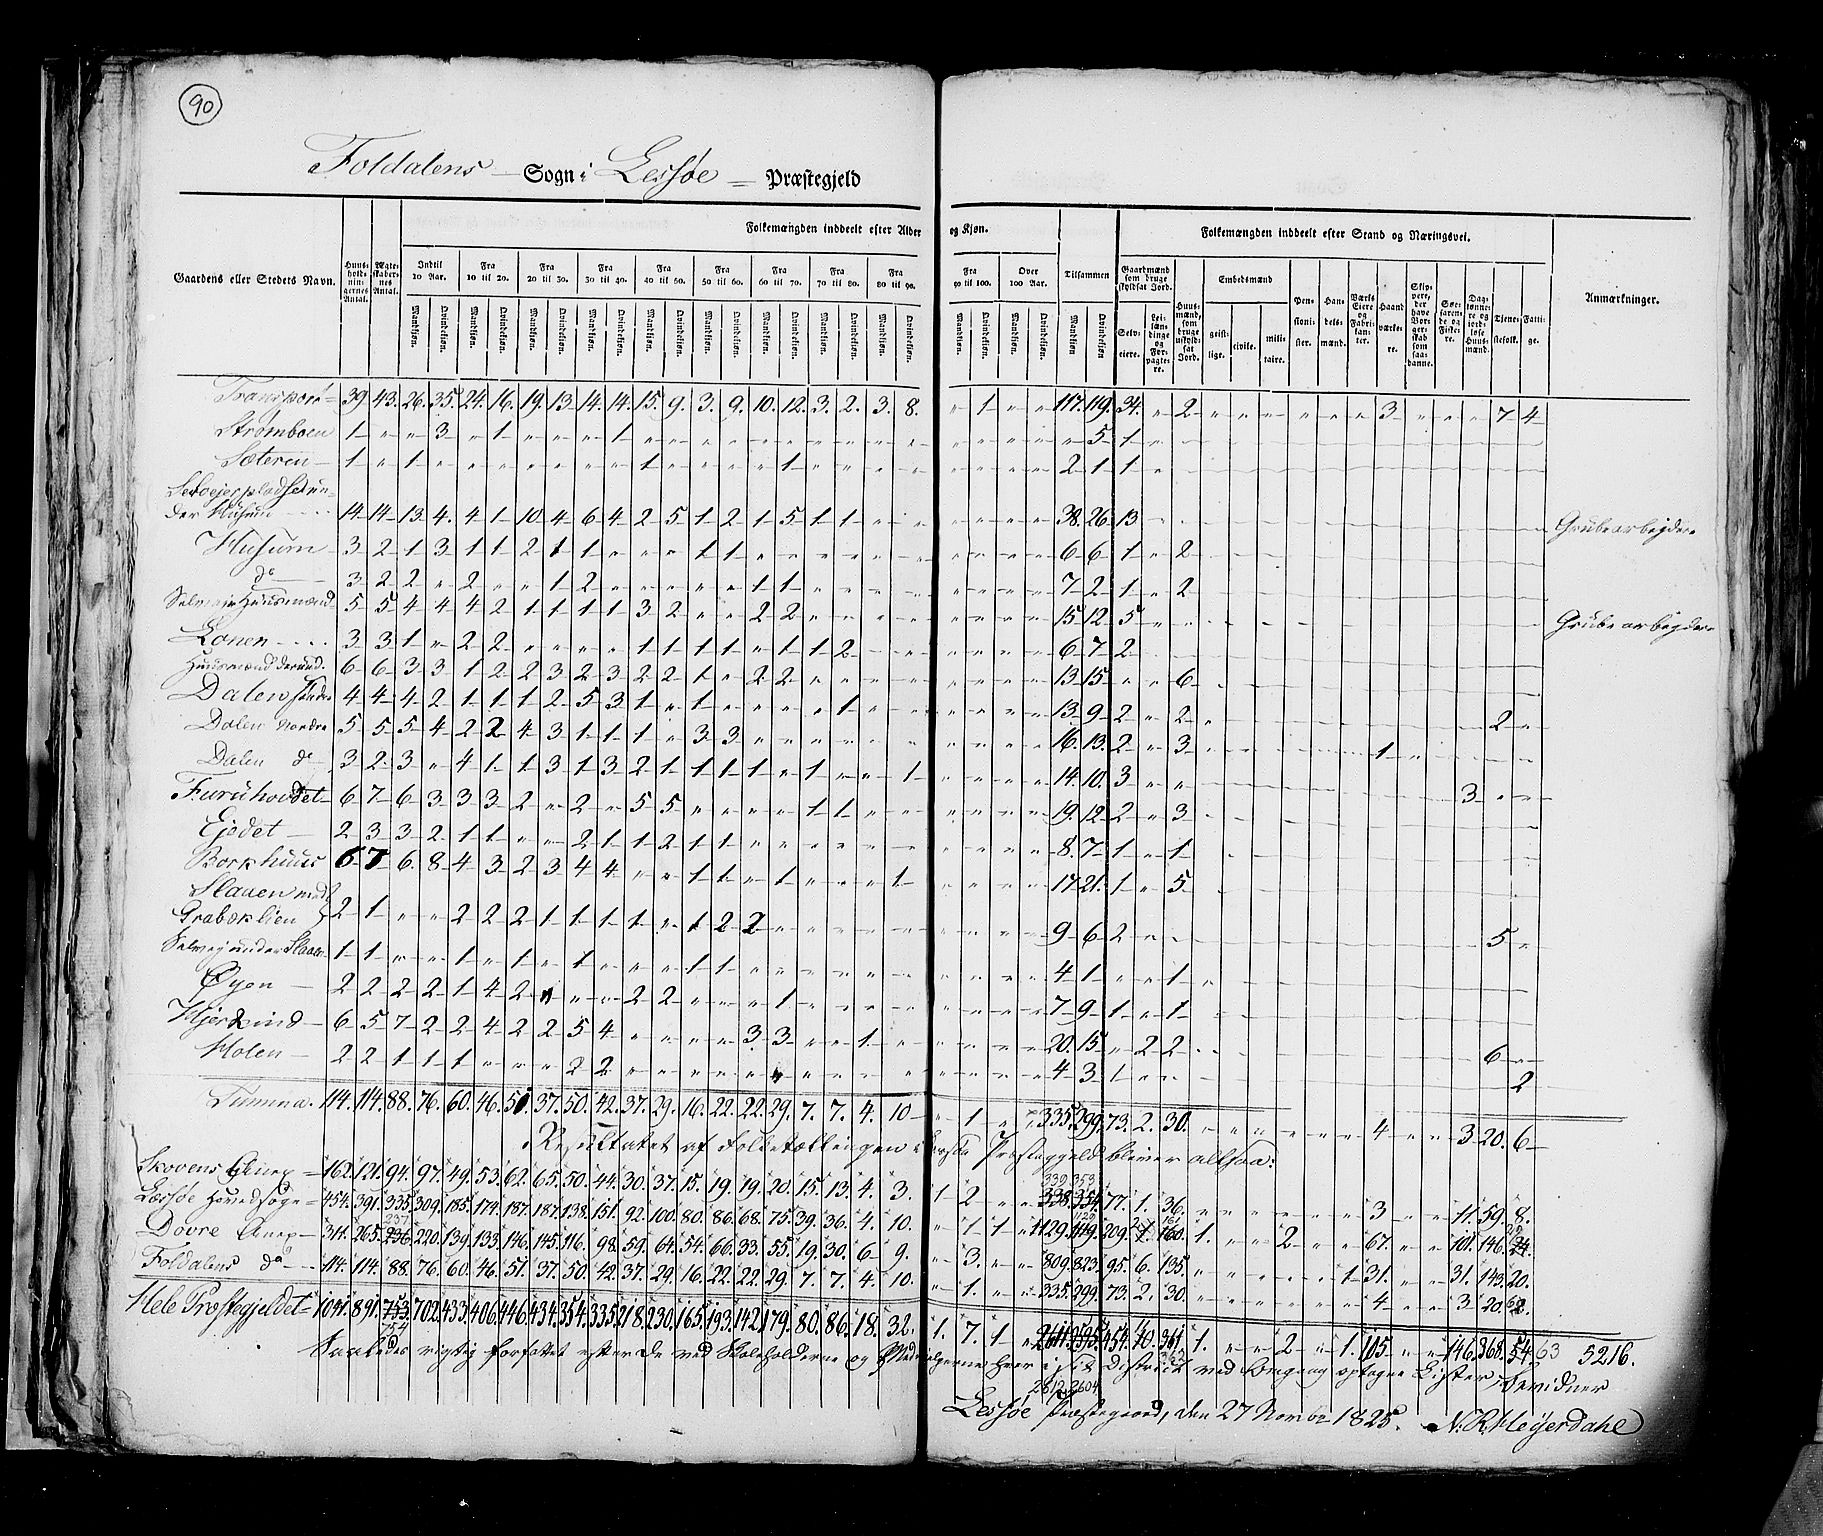 90
Foldalens Sogn i Lessøe Præstegjeld
Folkemængden inddeelt efter Alder og Kjøn.
Folkemængden inddeelt efter Stand og Næringsvei.
Gaardens eller Stedets Navn.
Huus-holdnin-gernes Antal.
Ægte-skaber-nes Antal.
Indtil 10 Aar.
Fra 10 til 20.
Fra 20 til 30.
Fra 30 til 40.
Fra 40 til 50.
Fra 50 til 60.
Fra 60 til 70.
Fra 70 til 80.
Fra 80 til 90.
Fra 90 til 100.
Over 100 Aar.
Tilsammen
Gaardmænd som bruge skyldsat Jord.
Selv-eiere.
Lei-læn-dinge og For-pagte-re.
Huus-mænd, som bruge uskyld-sat Jord.
Embedsmænd
geist-lige.
civile.
mili-taire.
Pen-sioni-ster.
Han-dels-mænd.
Værks Eiere og Fabrikan-ter.
Haand-værke-re.
Skip-pere, der have Bor-ger-skab som saa-danne.
Søe-farene-de og Fiske-re.
Dag-lønne-re og jord-løse Huus-mænd.
Tjene-stefolk.
Fatti-ge.
Anmærkninger.
Mandkiøn. Qvindekiøn.
Transport 39 43 26. 35. 24. 16. 19. 13 14. 14. 15. 9. 3. 9. 10. 12. 3. 2. 3. 8. " 1 " " 117. 119. 34. " 2 3 7 4
Strømboen 1 " " 3 " 1 " " " " 1 " 5 1
Sæteren 1 " 1 1 1 2 1 1
Selveierpladser un-
der Husum 14 14 13. 4. 4 1 10 4 6 4 2 5 1 2 1 5 1 1 38. 26 13 Grubearbeydere
Husum 3 2 1 3 1 1 2 1 1 " " " 1 1 6 6 1 " 2
do 3 2 2 " 2 " " 1 2 " " " " " 1 1 7 2 1 " 2
Selveeje Huusmænd 5 5 4 4 4 2 1 1 1 1 3 2 " " 2 2 15 12 5 Grubearbeydere
Lonen 3 3 1 " 2 2 " " " " 1 1 1 1 " 1 1 2 6 7 2
Huusmænd derund. 6 6 3 3 1 2 2 3 2 3 2 2 1 " 2 2 13 15 " " 6
Dalen Søndre 4 4 4 2 1 1 1 2 5 3 1 " 1 " " " " 1 13 9 2 " 2 2
Dalen Nordre 5 5 5 4 2 2 4 3 1 1 1 " 3 3 16. 13. 2 " 3 1
Dalen do 3 2 3 " 4 1 1 3 1 3 2 1 1 1 1 " 1 " " 1 14. 10. 3 3
Furuhovdet 6 7 6 3 3 3 2 " 2 " 5 5 " " " " 1 1 19. 12 2 " 3
Ejedet 2 3 3 2 1 1 " " 2 1 1 2 1 1 8. 7 1 " 1
Borkhuus 6 7 6 8 4 3 2 3 4 4 " " 1 1 " 1 " " " 1 17 21. 1 " 5
Slauen med
Grabæklien 2 1 " " 2 2 2 1 1 1 1 " 1 2 2 9 6 2 5
Selvej under Slaaen 1 1 " " 1 " 1 " 1 " " " 1 1 4 1 " " 1
Øyen 2 2 2 2 1 4 2 " " " 2 2 " " " 1 7 9 1 " 1
Hjerkind 6 5 7 2 2 4 2 2 5 4 " " " " 3 3 " " 1 20. 15 " 2 2 6
Molen 2 2 1 1 1 " " " 2 2 4 3 1 2
Summa. 114. 114. 88. 76. 60. 46. 51 37. 50. 42. 37. 29. 16. 22. 22. 29. 7. 7. 4. 10 " 1 " " 335. 299. 73. 2. 30. 4 3 20. 6
Resultatet af Folketællingen i Lessøe Præstegjeld bliver altsaa:
Skovens Anex 162. 121. 94. 97. 49. 53. 62. 65. 50. 44. 30. 37. 15. 19. 19. 20. 15. 13. 4. 3. 1 2 " " 338. 354. 77. 1. 36. 3 11. 59. 8.
339 353
Lessøe Hovedsogn 454. 391. 335. 309. 185. 174. 187. 187. 138. 151. 92. 100. 80. 86. 68. 75. 39. 36. 4. 10. " 1 1 " 1129. 1119. 209. 1 160. 1. 2 67. 101. 146. 24.
Dovre Anex 311. 265. 236. 220. 139. 133. 146. 145. 116. 98. 59. 64. 54. 66. 33. 55. 19. 30. 6 9. " 3. 809. 823. 95. 6. 135. 1. 31. 31. 143. 20.
237
Foldalens do 114. 114. 88. 76. 60. 46. 51. 37. 50. 42. 37. 29. 16. 22. 22. 29. 7. 7. 4. 10. " 1. 335. 299. 73. 2. 30. 4 3 20.
Hele Præstegjeldet 1041. 891. 753. 702. 433. 406. 446. 434. 354. 335. 218. 230. 165. 193. 142. 179. 80. 86. 18. 32. 1. 7. 1 454. 10. 361. 1. 2 1. 105 146. 368. 54. 63 5216.
754
2612. 2604.
Saaledes rigtig forfattet efter de ved Skoleholderne og Medhielperne hver i sit District ved Omgang optagne Lister, bevidner
Lessøe Præstegaard, den 27 Novembr 1825. N. R. Heyerdahl